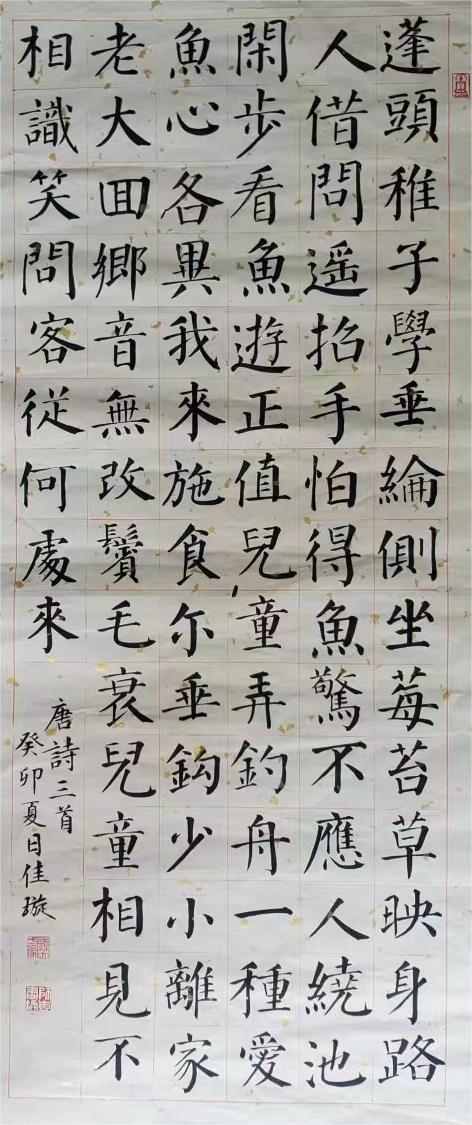 蓬頭稚子學垂綸側坐莓苔草映身路
人借問遥招手怕得魚驚不應人繞池
閑步看魚遊正值兒童弄釣舟一種愛
魚心各異我來施食尔垂鈎少小離家
老大囬鄉音無改鬢毛衰兒童相見不
相識笑問客從何處來
唐詩三首
癸卯夏日佳璇